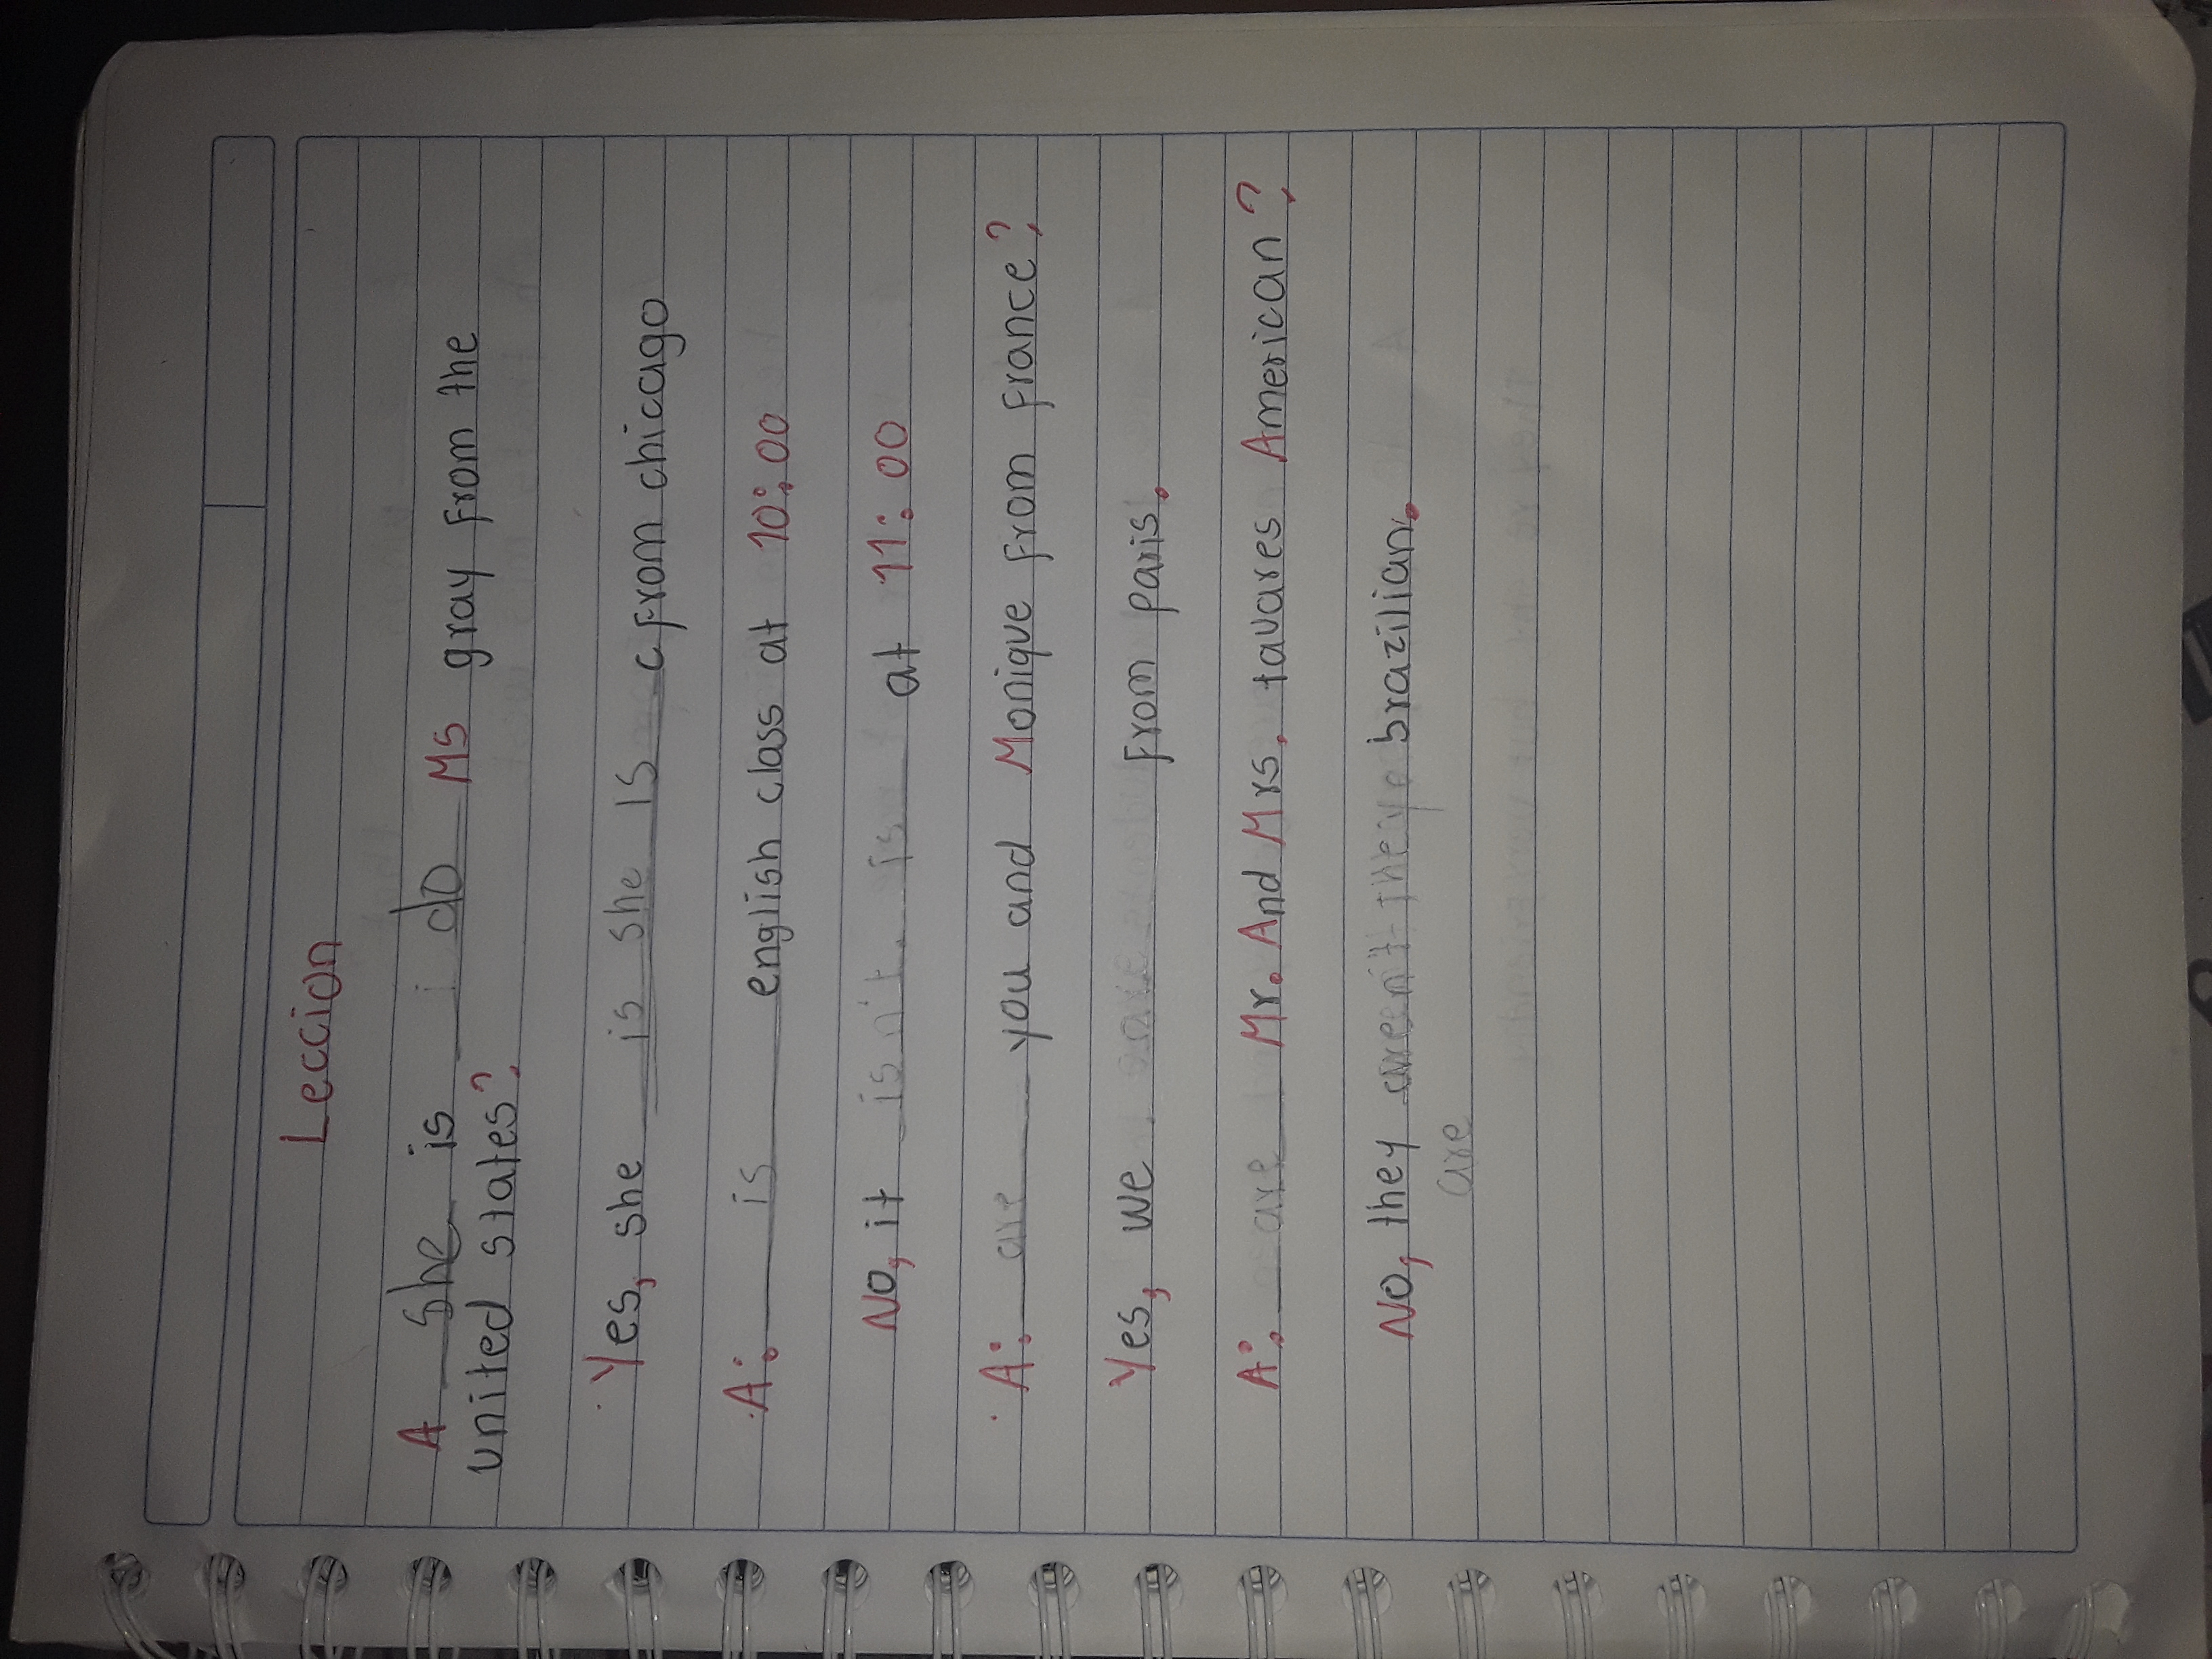 Leccion
A she is i do Ms gray from the
united states?
Yes, she is she is from chicago
A: is english class at 10:00
No, it isn't. is at 11:00
A: are you and Monique from france?
Yes, we are from paris.
A: are Mr. And Mrs. tavares American?
No, they aren't They brazilian.
are